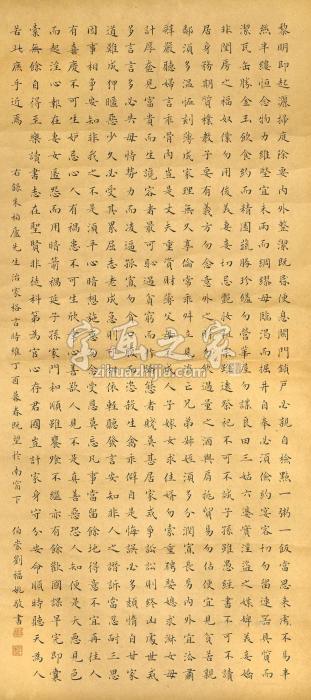 黎明即起灑掃庭除要內外整潔既昏便息關門鎖戶必親自檢點一粥一飯當思來處不易半
絲半縷恒念物力維艱宜未雨而綢繆毋臨渴而掘井自奉必須儉約宴客切勿留連器具質而
潔瓦缶勝金玉飲食約而精園蔬勝珍饈勿營華屋勿謀良田三姑六婆實淫盜之媒婢美妾嬌
非閨房之福奴僕勿用俊美妻妾切忌艷妝祖宗雖遠祭祀不可不誠子孫雖愚經書不可不讀
居身務期質樸教子要有義方勿貪意外之財勿飲過量之酒與肩挑貿易勿佔便宜見貧苦親
鄰須多溫恤刻薄成家理無久享倫常乖舛立見消亡兄弟叔姪須多分潤寡長幼內外宜法肅
辭嚴聽婦言乖骨肉豈是丈夫重貲財薄父母不成人子嫁女求佳婿勿索重聘娶媳求淑女毋
計厚奩見富貴而生諂容者最可恥遇貧窮而作驕態者賤莫甚居家戒爭訟訟則終凶處世戒
多言言多必失毋恃勢力而凌逼孤寡勿貪口腹而恣殺生禽乖僻自是悔誤必多頹惰自甘家
道難成狎暱惡少久必受其累屈志老成急則可相依輕聽發言安知非人之譖訴當忍耐三思
因事相爭安知非我之不是須平心暗想施惠勿念受恩莫忘凡事當留餘地得意不宜再往人
有喜慶不可生妒忌心人有禍患不可生欣幸心善欲人見不是真善惡恐人知便是大惡見色
而起淫心報在妻女匿怨而用暗箭禍延子孫家門和順雖饔飧不繼亦有餘歡國課早完即囊
橐無餘自得至樂讀書志在聖賢非徒科第為官心存君國豈計家身守分安命順時聽天為人
若此庶乎近焉
右錄朱柏廬先生治家格言時維丁酉暮春既望於南窗下
伯崇劉福姚敬書
字画之家